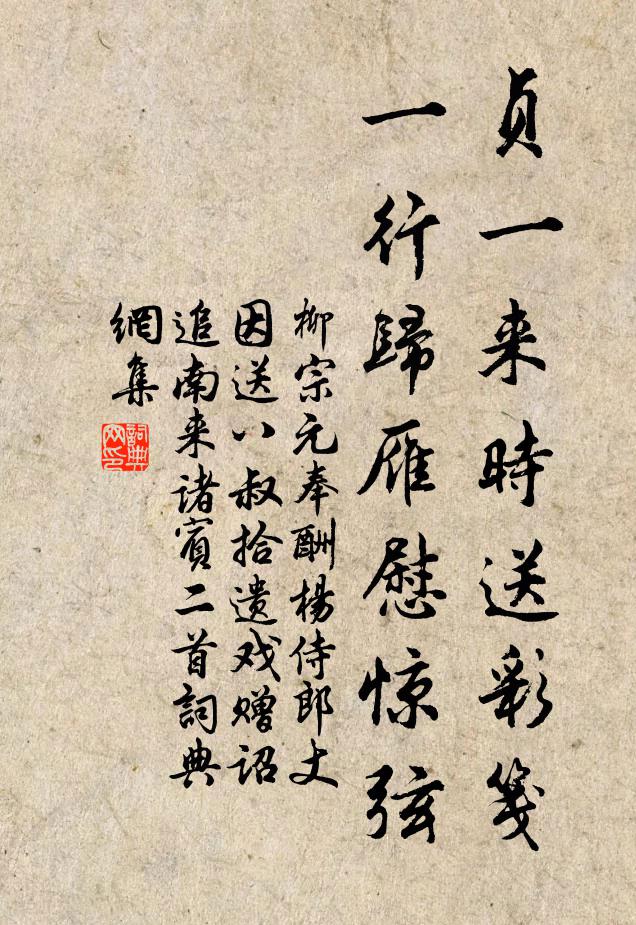 贞一来時送彩箋
一行歸雁慰惊弦
柳宗元奉酬楊侍郎丈
因送八叔拾遗戏赠诏
追南来诸賓二首詞典
網集
詞典
网印